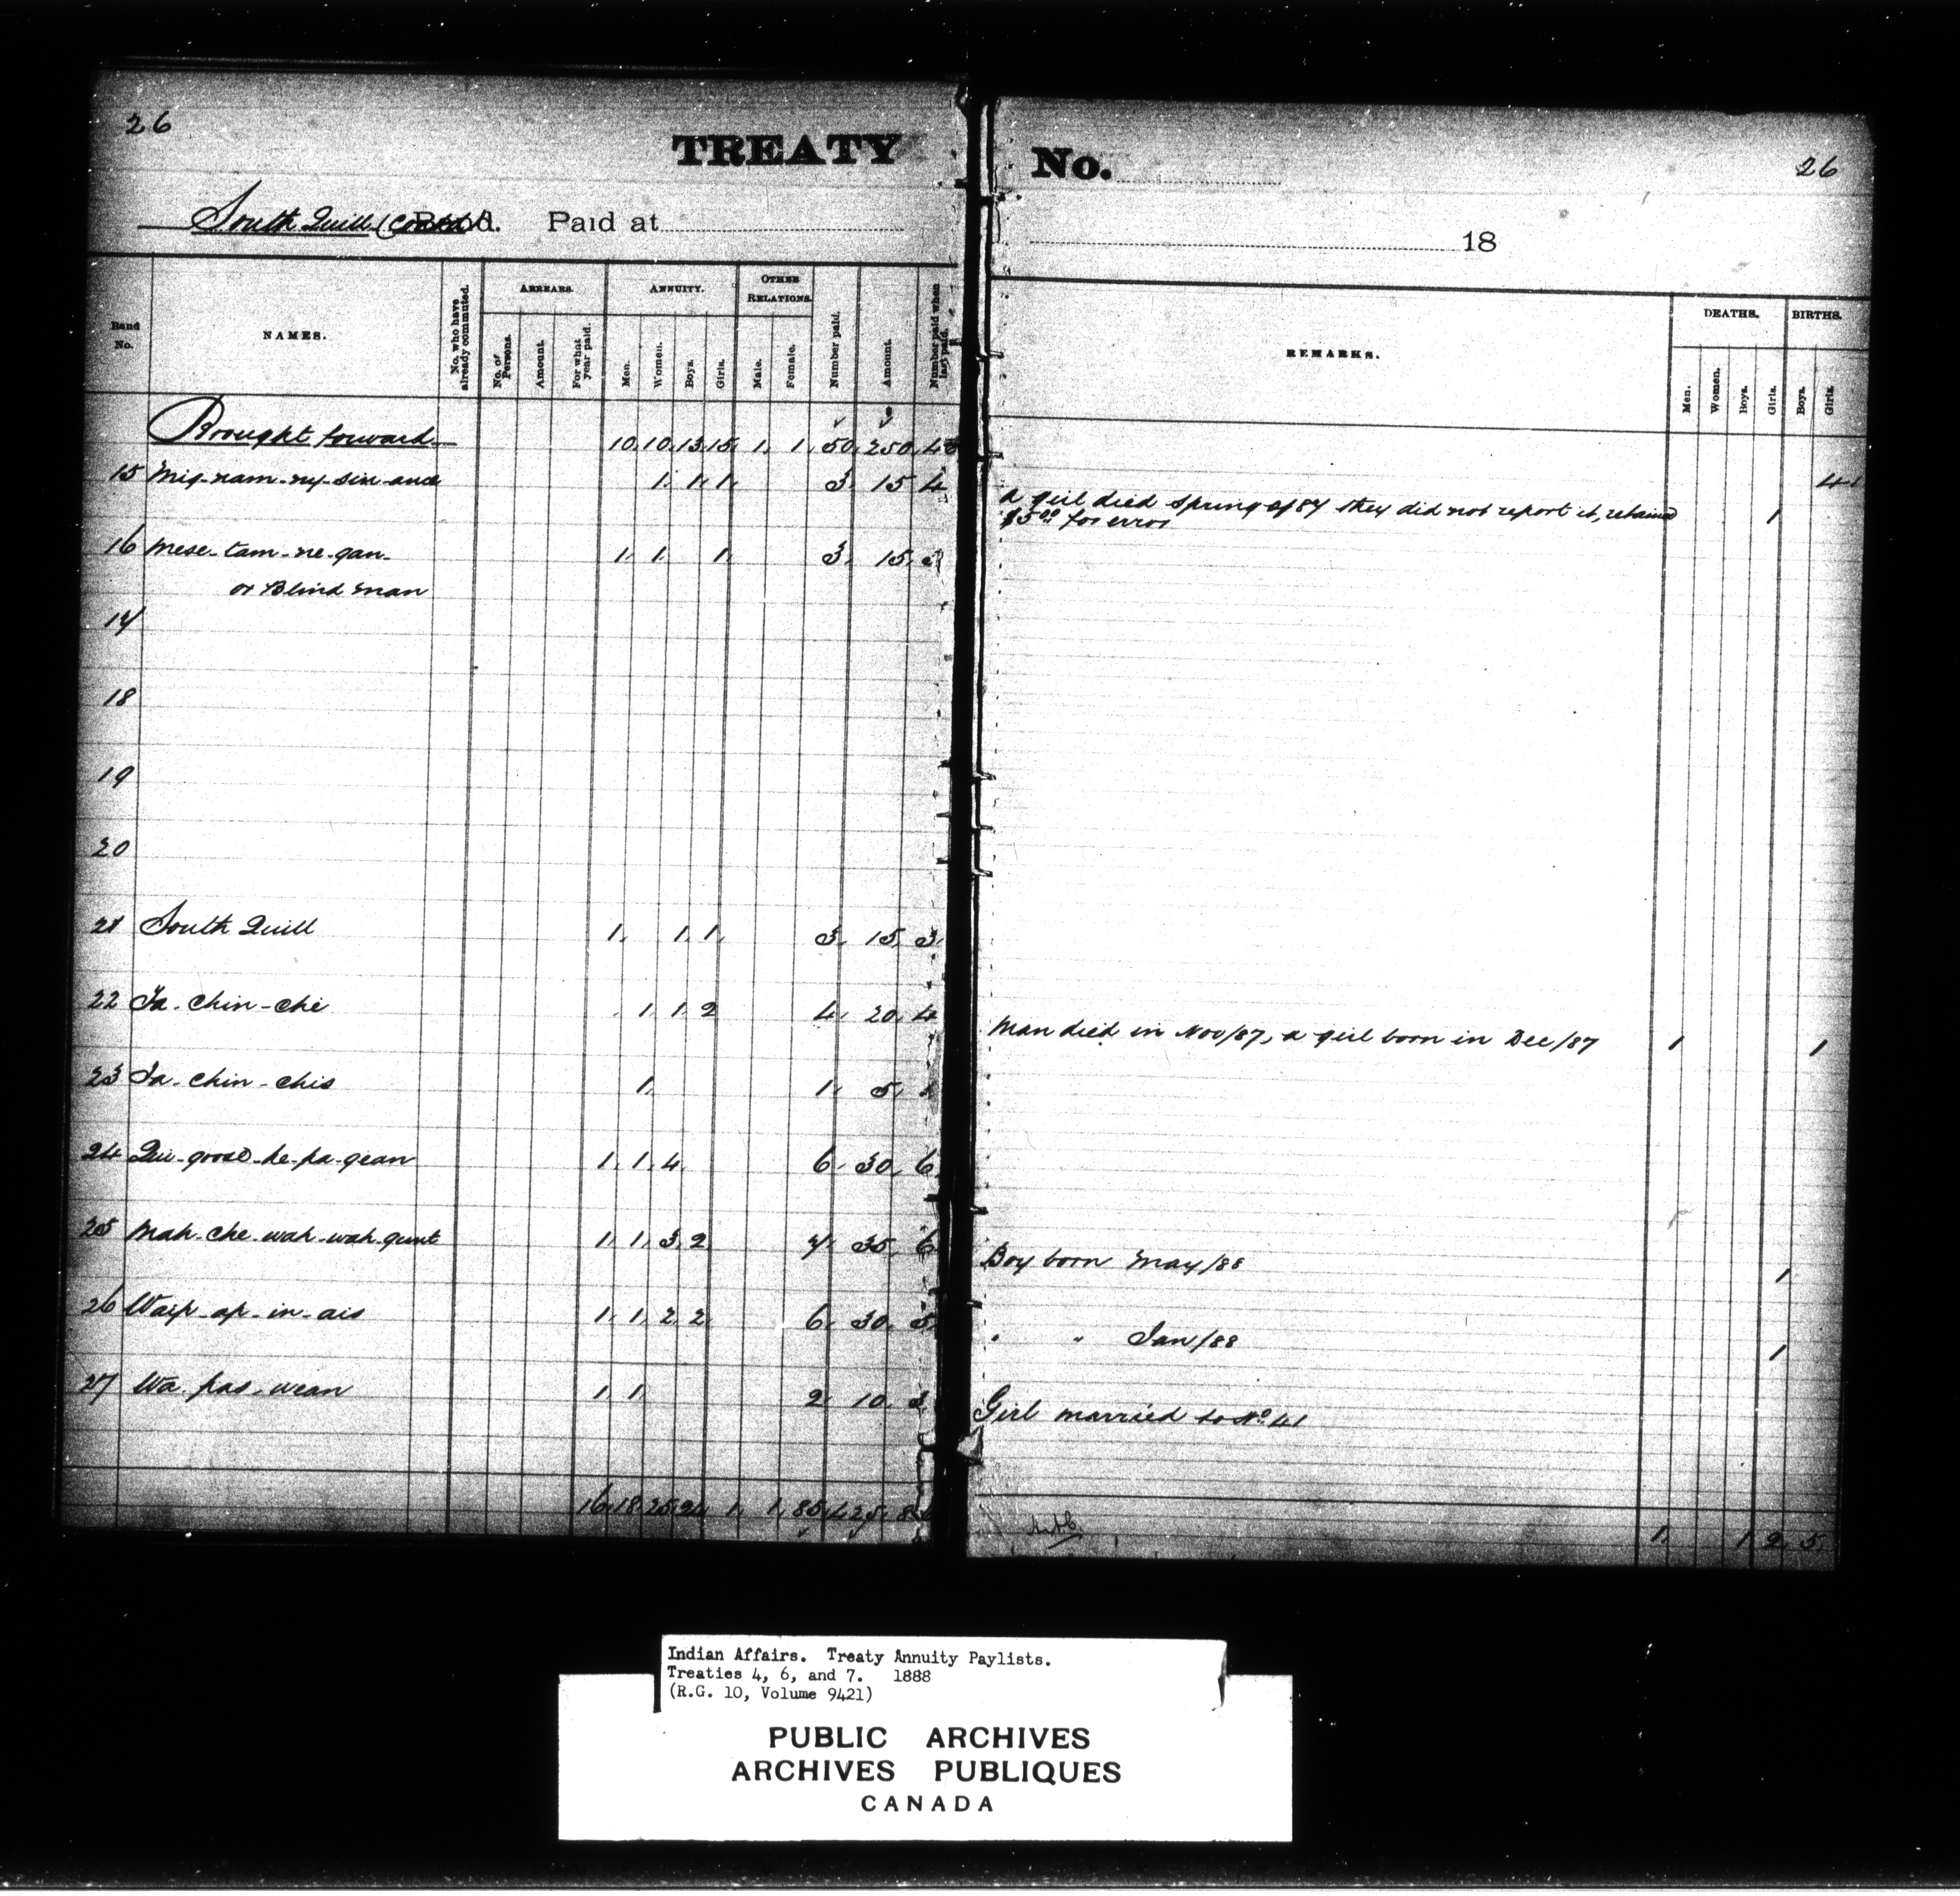 26
TREATY
South Quill (Contd) Band. Paid at
Band No.
NAMES.
No. who have already commuted.
ARREARS.
No. of Persons.
Amount.
For what year paid.
ANNUITY.
Men.
Women.
Boys.
Girls.
OTHER RELATIONS.
Male.
Female.
Number paid.
Amount.
Number paid when last paid.
Brought forward 10. 10. 13. 15. 1. 1. 50. 250. 48
15 Mis-nam-ny-sin-ance 1. 1. 1. 3. 15 4
16 Mese-tam-ne-gan- 1. 1. 1. 3. 15. 3
or Blind Man
17
18
19
20
21 South Quill 1. 1. 1. 3. 15. 3.
22 Ta-chin-che 1. 1. 2 4. 20. 4
23 Ta-chin-chis 1. 1. 5.
24 Qui-goose-he-pa-gean 1. 1. 4. 6. 30. 6
25 Mah-che-wah-wah-qunt 1. 1. 3. 2. 7. 35. 6
26 Waip-ap-in-ais 1. 1. 2. 2. 6. 30. 5.
27 Wa-pas-wean 1. 1. 2. 10. 3
16. 18. 25. 24 1. 1. 85. 425.
No.
26
18
REMARKS.
DEATHS.
Men.
Women.
Boys.
Girls.
BIRTHS.
Boys.
Girls.
4
A girl died Spring of 87 they did not report it, retained 1
$5.00 for error
Man died in Nov/87, a girl born in Dec/87 1 1
Boy born May/88 1
" " Jan/88 1
Girl married to No 41
1. 1 2. 5.
Indian Affairs. Treaty Annuity Paylists.
Treaties 4, 6, and 7. 1888
(R.G. 10, Volume 9421)
PUBLIC ARCHIVES
ARCHIVES PUBLIQUES
CANADA